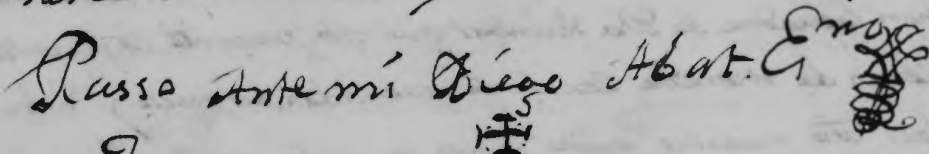 Passo Ante mi Diego Abat. Eno